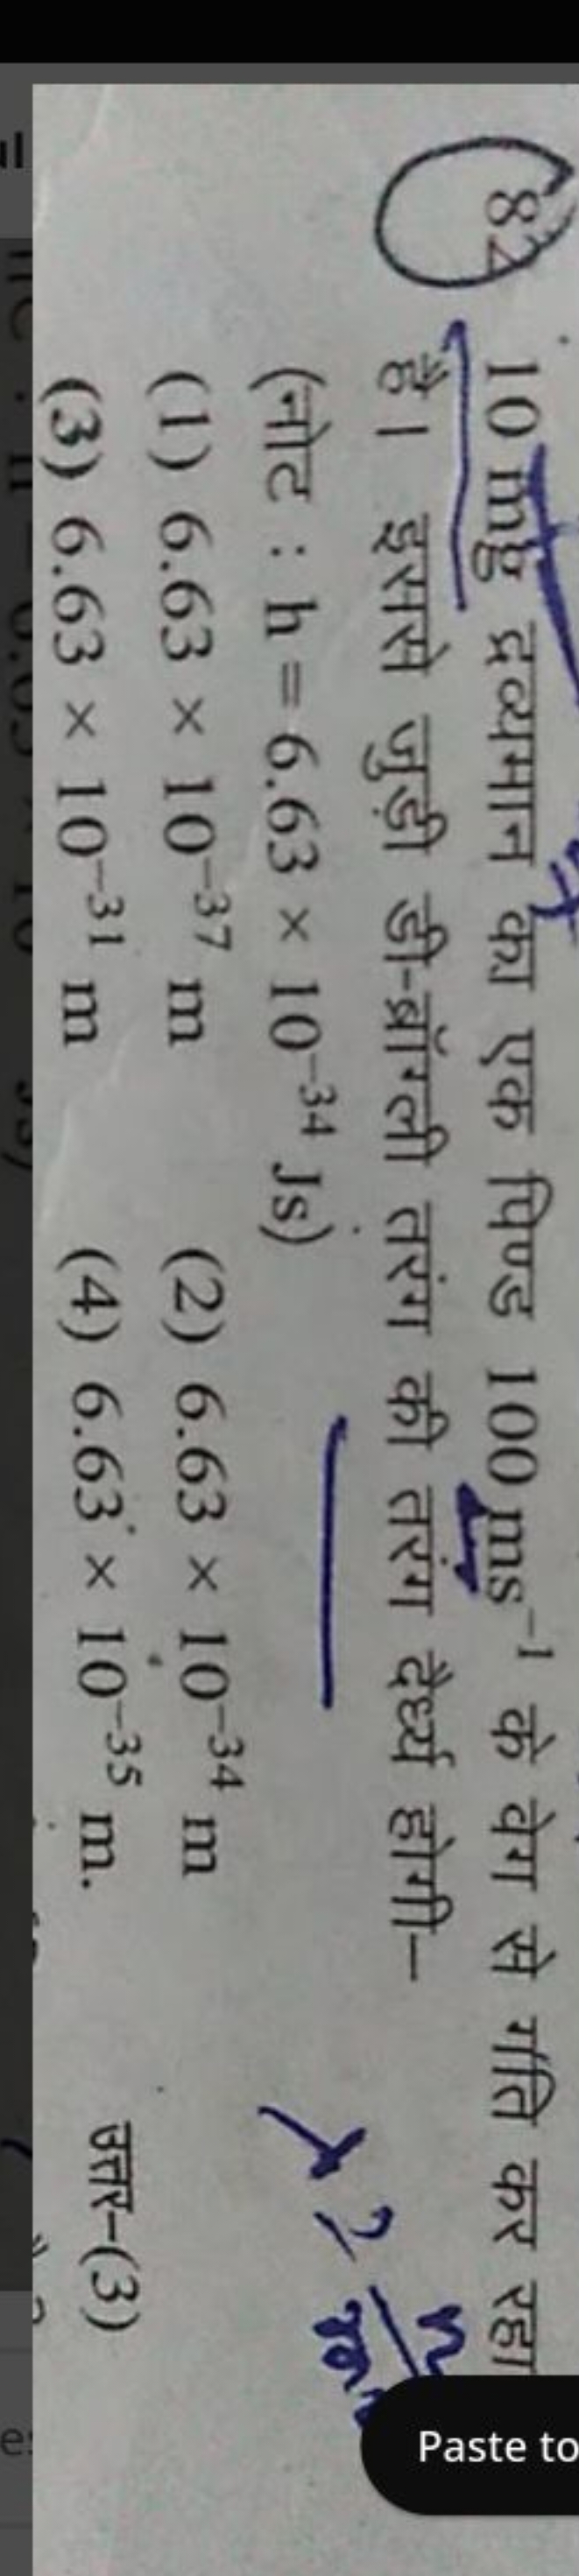 82 10 mg द्रव्यमान का एक पिण्ड 100 ms⁻¹ के वेग से गति कर रहा
है। इससे जुड़ी डी-ब्रॉग्ली तरंग की तरंग दैर्ध्य होगी–
(नोट : h = 6.63 × 10⁻³⁴ Js)
(1) 6.63 × 10⁻³⁷ m (2) 6.63 × 10⁻³⁴ m
(3) 6.63 × 10⁻³¹ m (4) 6.63 × 10⁻³⁵ m.
उत्तर–(3)
Paste to